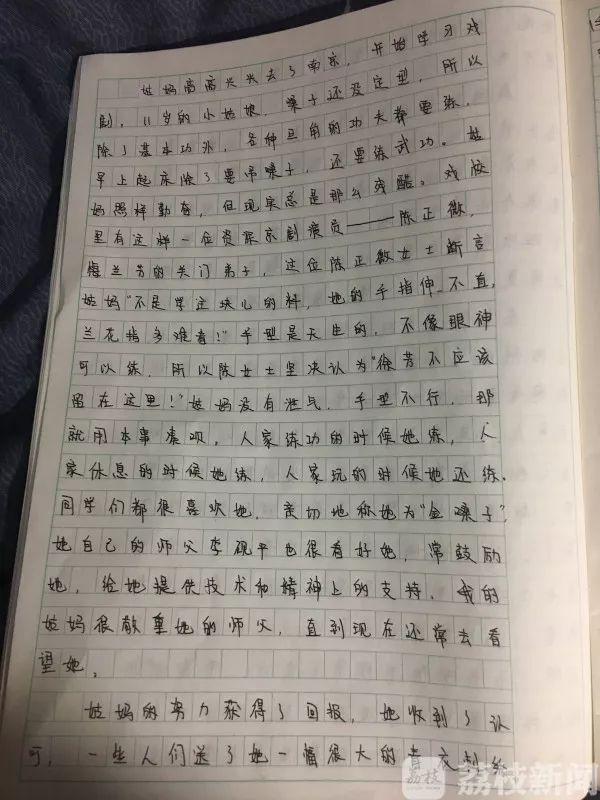 姑妈高高兴兴去了南京，开始学习戏
剧，11岁的小姑娘，嗓子还没定型，所以
除了基本功外，各种旦角的功夫都要练，
早上起床除了要吊嗓子，还要练武功。姑
妈照样勤奋，但现实总是那么残酷。戏校
里有这样一位资深京剧演员——陈正薇，
梅兰芳的关门弟子，这位陈正薇女士断言
姑妈“不是学这块儿的料，她的手指伸不直，
兰花指多难看！”手型是天生的，不像眼神
可以练，所以陈女士坚决认为“徐芳不应该
留在这里！”姑妈没有泄气，手型不行，那
就用本事凑呗，人家练功的时候她练，人
家休息的时候她练，人家玩的时候她还练。
同学们都很喜欢她，亲切地称她为“金嗓子”，
她自己的师父李砚平也很看好她，常鼓励
她，给她提供技术和精神上的支持，我的
姑妈很敬重她的师父，直到现在还常去看
望她。
姑妈的努力获得了回报，她收到了认
可，一些人们送了她一幅很大的青衣刺绣
荔枝
荔枝新闻